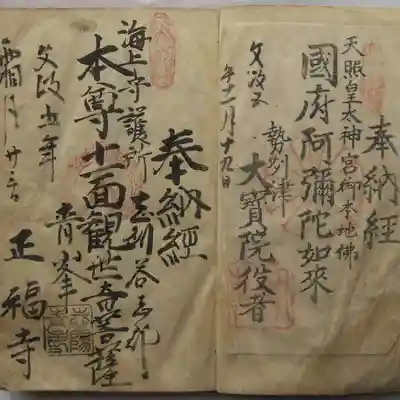 奉納經
天照皇太神宮御本地佛
國府阿彌陀如來
勢州津
大寶院役者
文政五
午十一月十九日
奉納經
海上守護所
本尊十一面觀世音菩薩
文政五年
霜月廿
青峯
正福寺